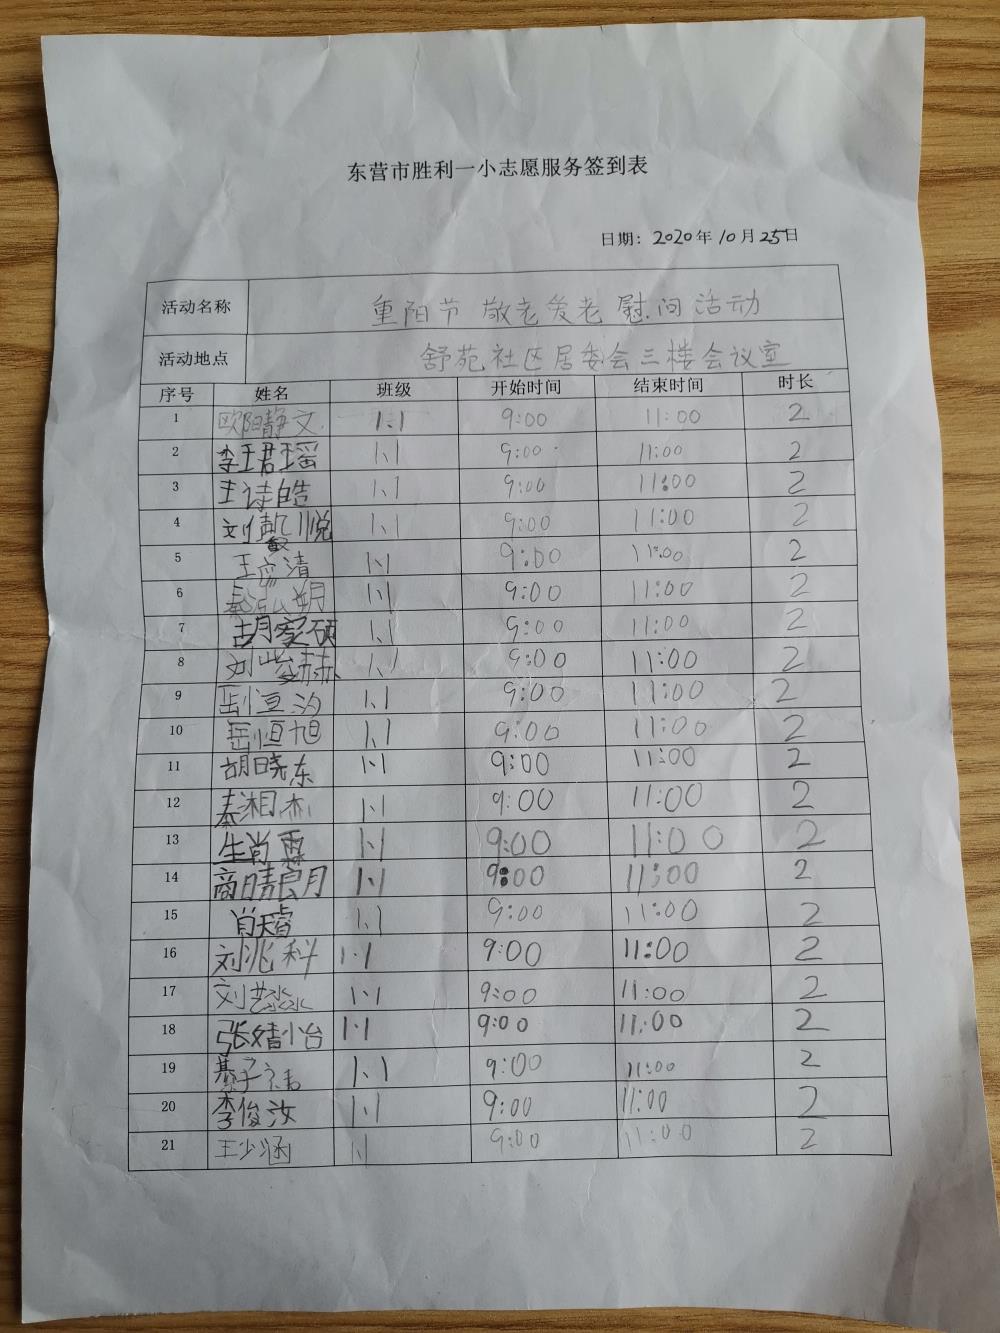 东营市胜利一小志愿服务签到表
日期: 2020年10月25日
活动名称 重阳节 敬老爱老 慰问活动
活动地点 舒苑社区居委会三楼会议室
序号 姓名 班级 开始时间 结束时间 时长
1 欧阳静文 1.1 9:00 11:00 2
2 李珺瑶 1.1 9:00 11:00 2
3 王诗皓 1.1 9:00 11:00 2
4 1.1 9:00 11:00 2
5 1.1 9:00 11:00 2
6 1.1 9:00 11:00 2
7 胡家硕 1.1 9:00 11:00 2
8 刘峻赫 1.1 9:00 11:00 2
9 岳恒汐 1.1 9:00 11:00 2
10 岳恒旭 1.1 9:00 11:00 2
11 胡晓东 1.1 9:00 11:00 2
12 秦湘杰 1.1 9:00 11:00 2
13 生肖霖 1.1 9:00 11:00 2
14 商晴朗 1.1 9:00 11:00 2
15 肖天睿 1.1 9:00 11:00 2
16 刘兆科 1.1 9:00 11:00 2
17 刘艺淼 1.1 9:00 11:00 2
18 张婧怡 1.1 9:00 11:00 2
19 1.1 9:00 11:00 2
20 李俊汝 1.1 9:00 11:00 2
21 王少涵 1.1 9:00 11:00 2